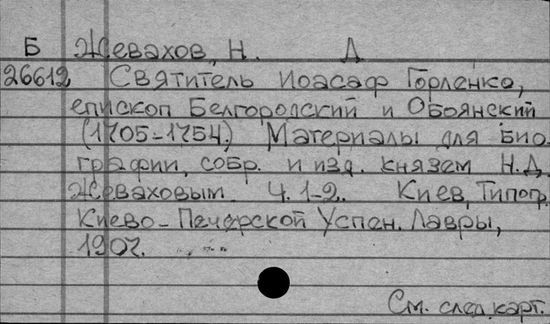 Б Жевахов, Н. Д
26612 Святитель Иоасаф Горленко,
епископ Белгородский и Обоянский
(1705-1754) Материалы для био-
графии, собр. и изд. князем Н.Д.
Жеваховым. Ч. 1-2. Киев, Типогр.
Киево-Печерской Успен. Лавры,
1907.
См. след. карт.